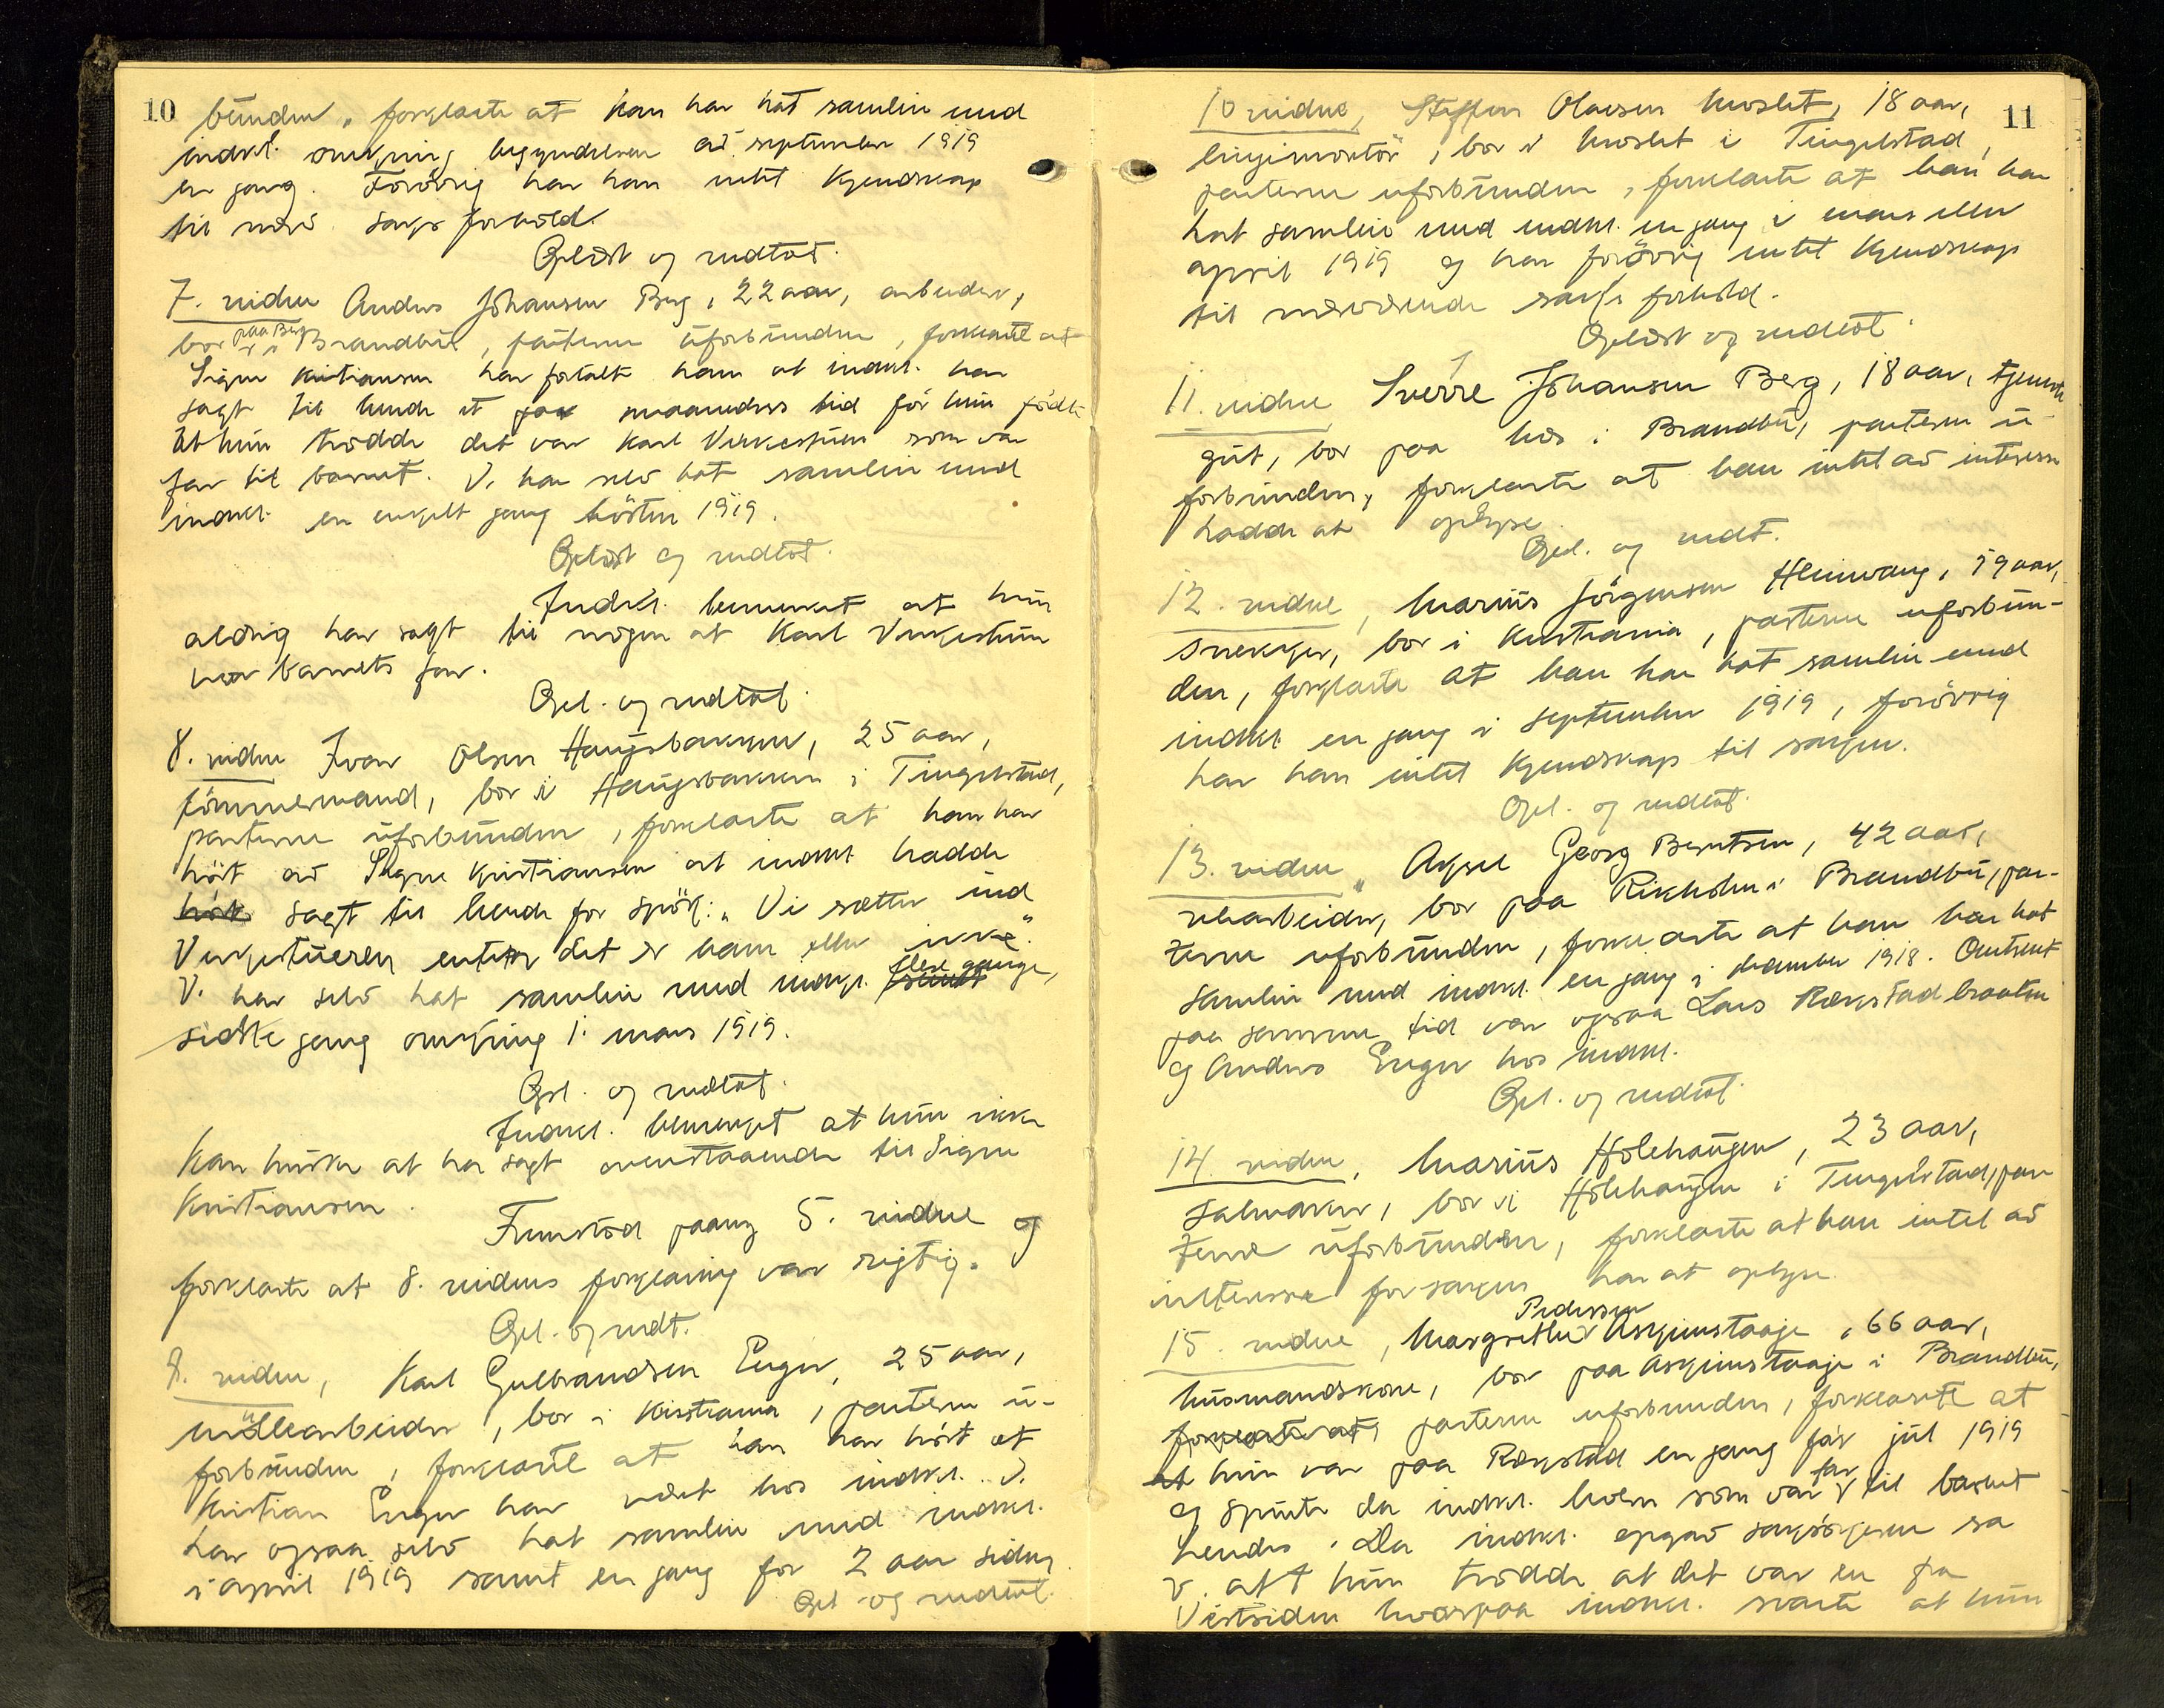 10
bunden, forklarte at han har hat samleie med
indkl. omkring begyndelsen av september 1919
en gang. Forövrig har han intet kjendskap
til nærv. saks forhold.
Oplæst og vedtat.
7. vidne Anders Johansen Berg, 22 aar, arbeider,
paa Berg
bor i Brandbu, parterne uforbunden, forklarte at
Signe Kristiansen har fortalt ham at indkl. har
sagt til hende et par maaneders tid för hun födte
at hun trodde det var Karl Virkestuen som var
far til barnet. V. har selv hat samleie med
indkl. en enkelt gang hösten 1919.
Oplæst og vedtat.
Indkl. bemerket at hun
aldrig har sagt til nogen at Karl Virkestuen
var barnets far.
Opl. og vedtat.
8. vidne Ivar Olsen Haugsbakken, 25 aar,
tömmermand, bor i Haugsbakken i Tingelstad,
parterne uforbunden, forklarte at han har
hört av Signe Kristiansen at indkl. hadde
hört sagt til hende for spök: "Vi sætter ind
Virkestuen enten det er ham eller ikke".
V. har selv hat samleie med indkl. flere gange,
sidste gang omkring 1. mars 1919.
Opl. og vedtat.
Indkl. bemerket at hun ikke
kan huske at ha sagt ovenstaaende til Signe
Kristiansen.
Fremstod paany 5. vidne og
forklarte at 8. vidnes forklaring var rigtig.
Opl. og vedt.
9. vidne, Karl Gulbrandsen Enger, 25 aar,
möllearbeider, bor i Kristiania, parterne u-
forbunden, forklarte at han har hört at
Kristian Enger har været hos indkl. V.
har ogsaa selv hat samleie med indkl.
i april 1919 samt en gang for 2 aar siden
Opl. og vedtat.
11
10 vidne, Steffen Olaesen Moslet, 18 aar,
linjemontör, bor i Moslet i Tingelstad,
parterne uforbunden, forklarte at han har
hat samleie med indkl. en gang i mars eller
april 1919 og har forövrig intet kjendskap
til nærværende saks forhold.
Oplæst og vedtat.
11. vidne Sverre Johansen Berg, 18 aar, tjeneste
gut, bor paa Næs i Brandbu, parterne u-
forbunden, forklarte at han intet av interesse
hadde at oplyse.
Opl. og vedt.
12. vidne, Marius Jörgensen Hemvang, 59 aar,
snekker, bor i Kristiania, parterne uforbun-
den, forklarte at han har hat samleie med
indkl. en gang i september 1919, forövrig
har han intet kjendskap til saken.
Opl. og vedtat.
13. vidne, Aksel Georg Berntsen, 42 aar,
arbeider, bor paa Rikholm i Brandbu, par-
terne uforbunden, forklarte at han har hat
samleie med indkl. en gang i december 1918. Omtrent
paa samme tid var ogsaa Lars Rækstadbraaten
og Anders Enger hos indkl.
Opl. og vedtat.
14. vidne, Marius Holehaugen, 23 aar,
salmaker, bor i Holehaugen i Tingelstad, par
terne uforbunden, forklarte at han intet av
interesse for saken har at oplyse.
Pedersen
15. vidne, Margrethe Askjumstaaje, 66 aar,
husmandskone, bor paa Askjumstaaje i Brandbu,
forklarte at, parterne uforbunden, forklarte at
at hun var paa Rækstad en gang för jul 1919
far
og spurte da indkl. hvem som var til barnet
hendes. Da indkl. opgav saksökeren sa
v. at hun trodde at det var en fra
Vestsiden hvorpaa indkl. svarte at hun